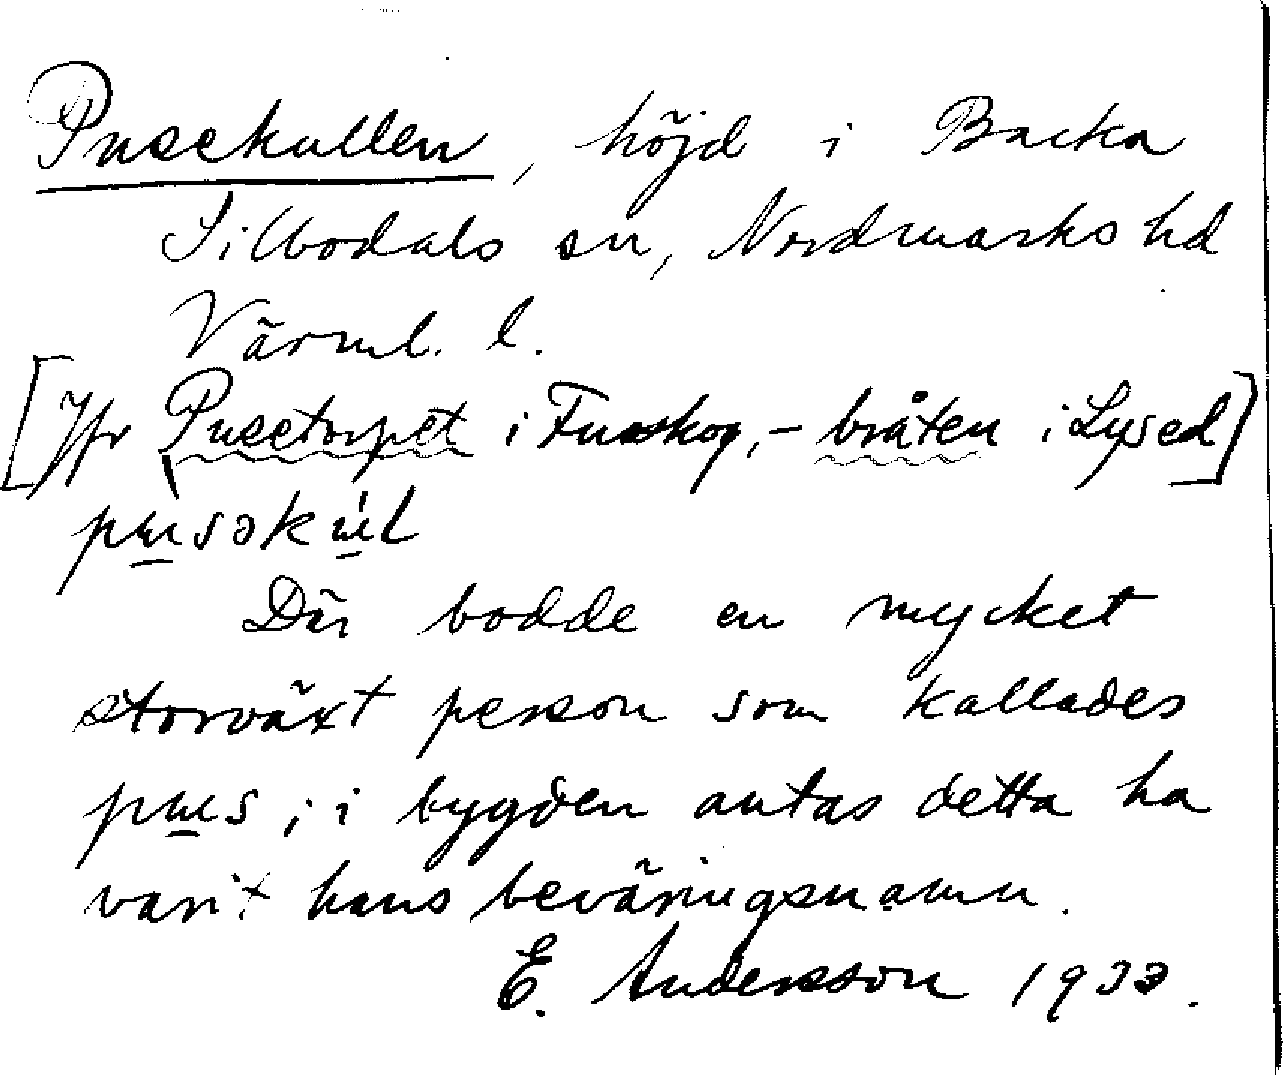 Pusekullen, höjd i Backa
Silbodals sn, Nordmarks hd
Värml. l.
[Jfr Pusetorpet i Fuxskog, - bråten i Lysed]
Där bodde en mycket
storväxt person som kallades
pɯs; i bygden antas detta ha
varit hans beväringsnamn.
E. Andersson 1933.